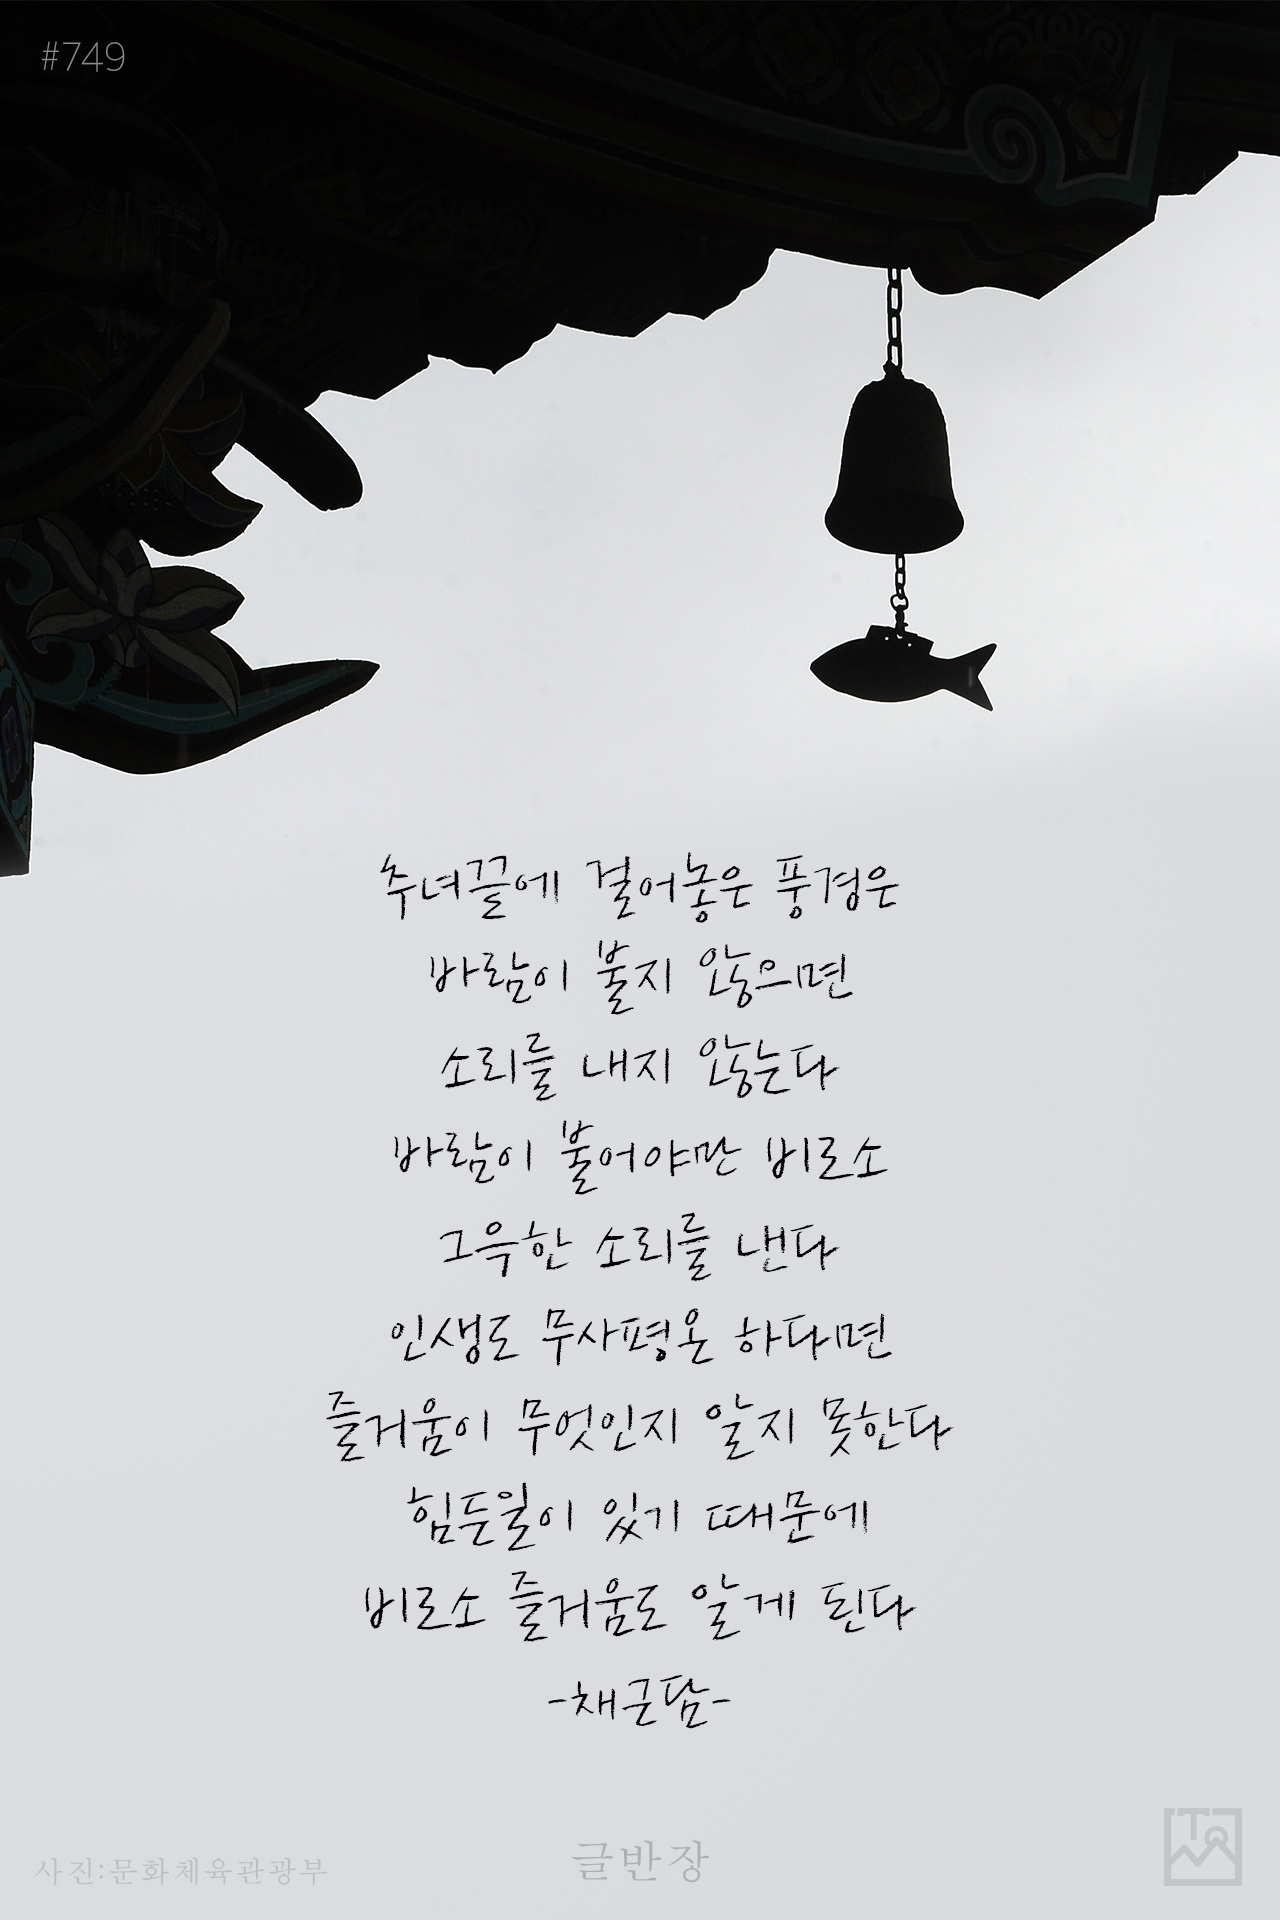 #749
추녀끝에 걸어놓은 풍경은
바람이 불지 않으면
소리를 내지 않는다
바람이 불어야만 비로소
그윽한 소리를 낸다
인생도 무사평온 하다면
즐거움이 무엇인지 알지 못한다
힘든일이 있기 때문에
비로소 즐거움도 알게 된다
-채근담-
사진:문화체육관광부
글반장